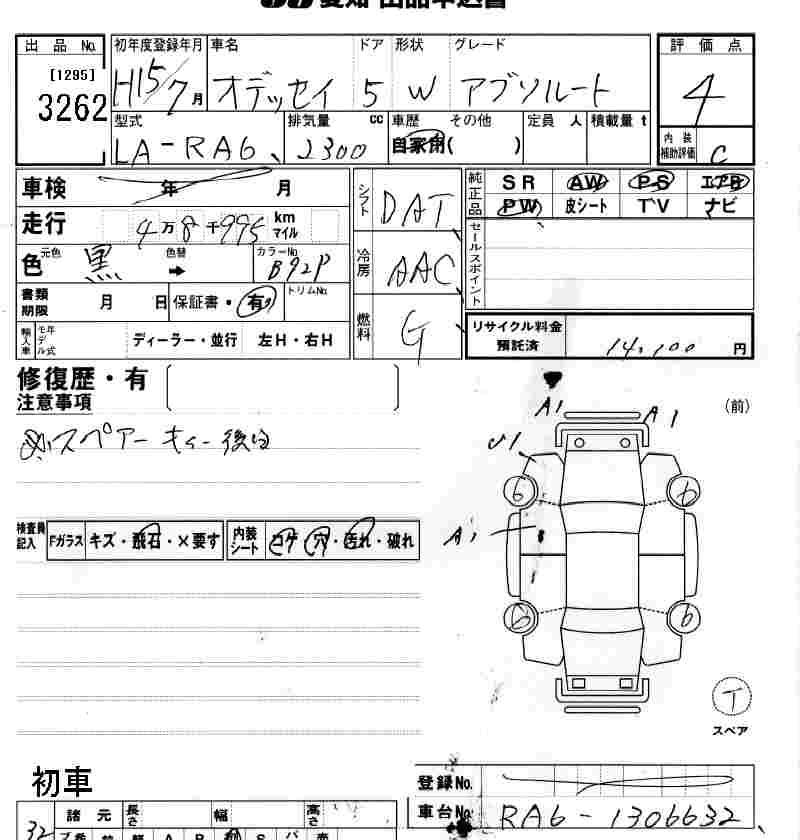 愛知 出品申込書
出品 No. 初年度登録年月 車名 ドア 形状 グレード 評価点
[1295]
3262 H15/7月 オデッセイ 5 W アブソルート 4
型式 排気量 cc 車歴 その他 定員 人 積載量 t 内装補助評価
LA-RA6 2300 自家用( ) C
車検 年 月 シフト DAT 純正品 SR AW PS エアB
PW 皮シート TV ナビ
走行 4万8千995 km マイル セールスポイント
元色 色替 カラーNo.
色 黒 ➡ B92P 冷房 AAC
書類期限 月 日 保証書・有 トリムNo. 燃料 G
輸入車 モデル年式 ディーラー・並行 左H・右H リサイクル料金預託済 14,100 円
修復歴・有
注意事項
スペアーキー後日
A1 A1 (前)
U1
6 6
A1
検査員記入 Fガラス キズ・飛石・×要す 内装シート コゲ・穴・汚れ・破れ
6 6
T
スペア
初車
登録No.
車台No. RA6-1306632
諸元 長さ 幅 高さ
32